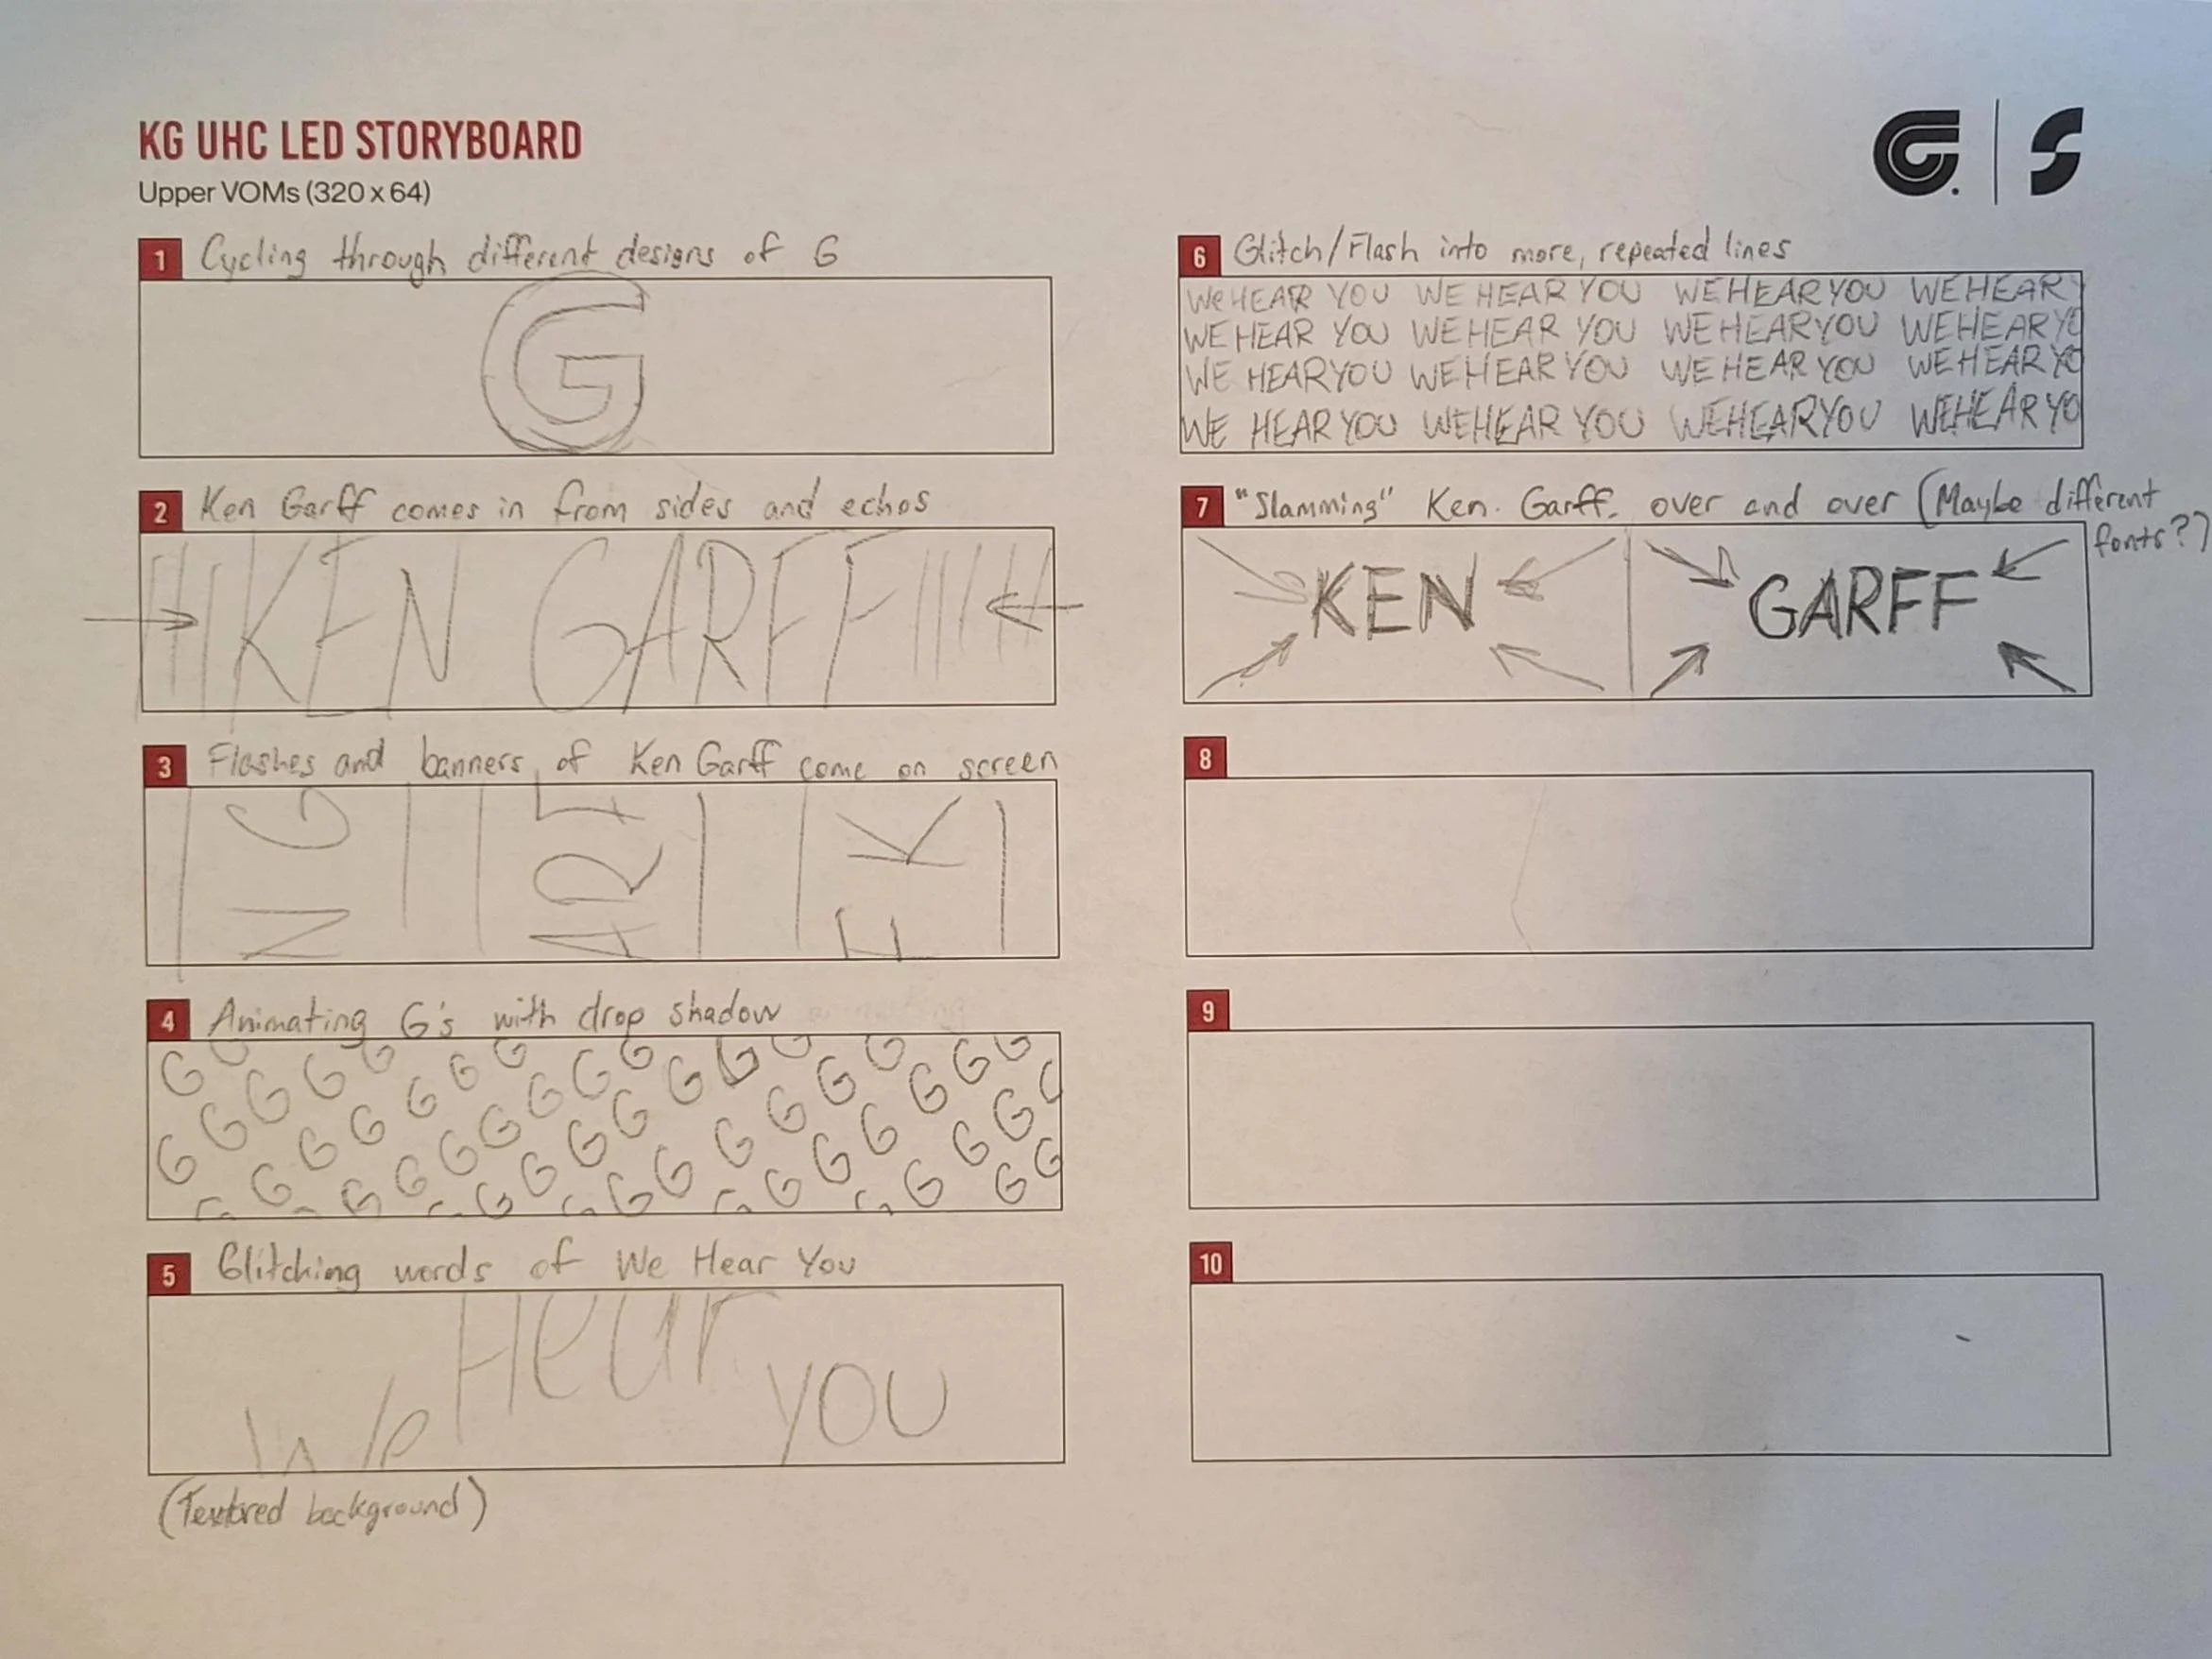 KG UHC LED STORYBOARD
Upper VOMs (320 x 64)
1 Cycling through different designs of G
G
2 Ken Garff comes in from sides and echos
KEN GARFF
3 Flashes and banners of Ken Garff come on screen
N G
ARF
E K
4 Animating G's with drop shadow
G G G G G G G G G G G G G G
G G G G G G G G G G G G G G
G G G G G G G G G G G G G G
5 Glitching words of We Hear You
We Hear YOU
(Textured background)
6 Glitch/Flash into more, repeated lines
We HEAR YOU WE HEAR YOU WE HEAR YOU WE HEAR Y
WE HEAR YOU WE HEAR YOU WE HEAR YOU WE HEAR YO
WE HEAR YOU WE HEAR YOU WE HEAR YOU WE HEAR YO
WE HEAR YOU WE HEAR YOU WE HEAR YOU WE HEAR YO
7 "Slamming" Ken. Garff. over and over (Maybe different
fonts?)
KEN GARFF
8
9
10